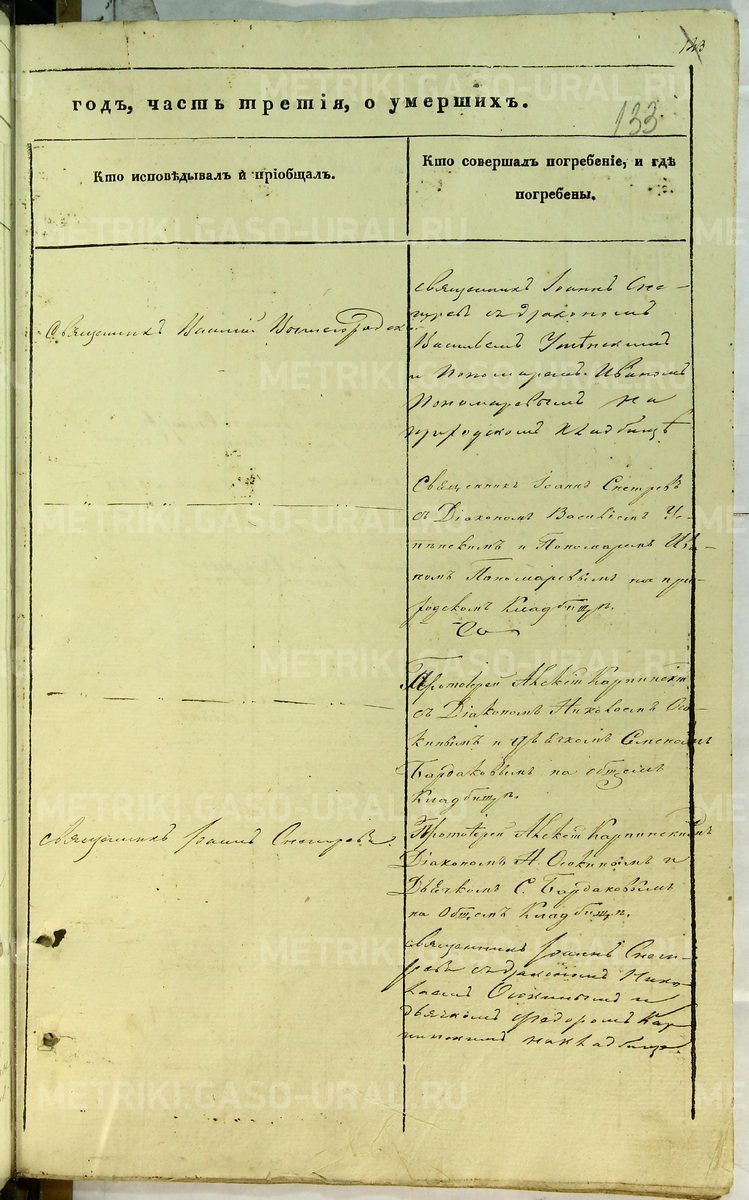 133
годъ, часть третія, о умершихъ.
133
Кто исповѣдывалъ и пріобщалъ.
Кто совершалъ погребеніе, и гдѣ
погребены.
Священникъ Василій
Священникъ Іоаннъ Сне-
гиревъ съ діакономъ
Васильемъ Успенскимъ
и Пономаремъ Иваномъ
Пономаревымъ на
городскомъ кладбищѣ
Священникъ Іоаннъ Снегиревъ
съ Діакономъ Василіемъ Ус-
пенскимъ и Пономаремъ Ива-
номъ Пономаревымъ на
городскомъ Кладбищѣ.
Протоіерей Алексѣй Карпинскій
съ Діакономъ Николаемъ Осо-
кинымъ и дьячкомъ Семеномъ
Бардаковымъ на общемъ
Кладбищѣ.
Священникъ Іоаннъ Снегиревъ.
Протоіерей Алексѣй Карпинскій съ
Діакономъ Н. Осокинымъ и
Дьячкомъ С. Бардаковымъ
на Общемъ Кладбищѣ.
Священникъ Іоаннъ Снеги-
ревъ съ діакономъ Нико-
лаемъ Осокинымъ и
дьячкомъ Федоромъ Кар-
пинскимъ на кладбищѣ.
METRIKI.GASO-URAL.RU